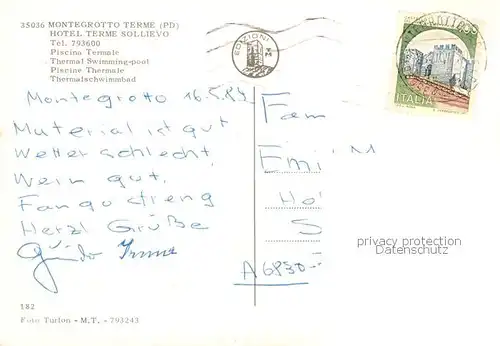 35036 MONTEGROTTO TERME (PD)
HOTEL TERME SOLLIEVO
Tel. 793600
Piscina Termale
Thermal Swimming-pool
Piscine Thermale
Thermalschwimmbad
EDIZIONI
ITALIA
Montegrotto 16.5.84
Material ist gut
Wetter schlecht
Wein gut,
Fango streng
Herzl Grüße
Guido
Fam
Emi M
Ho
S
A 6830
privacy protection
Datenschutz
182
Foto Turlon - M.T. - 793243